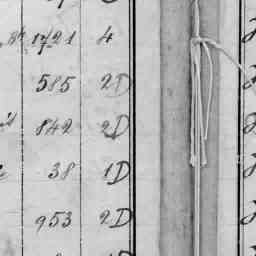 1721 4
585 2D
842 2D
38 1D
953 2D